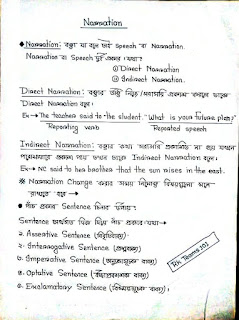 Narration
● Narration: বক্তা যা বলে তাই Speech বা Narration.
Narration বা Speech দুই প্রকার। যথা:
① Direct Narration
② Indirect Narration.
Direct Narration: বক্তার উক্তি সরাসরি প্রকাশ করলে তাকে
Direct Narration বলে।
Ex → The teacher said to the student, "What is your future plan?"
Repeating verb Repeated speech
Indirect Narration: বক্তার কথা সরাসরি প্রকাশিত না হয়ে যখন
প্রকাশ পায় তখন তাকে Indirect Narration বলে।
Ex → NC said to his brother that the sun rises in the east.
※ Narration Change করার সময় বিষয়গুলো মনে
রাখতে হবে →
● পাঁচ প্রকার Sentence চিনার উপায়:
Sentence পাঁচ প্রকার। যথা:
১. Assertive Sentence (বিবৃতিমূলক)
২. Interrogative Sentence (প্রশ্নবোধক)
৩. Imperative Sentence (অনুজ্ঞাসূচক বাক্য)
৪. Optative Sentence (বাক্য)
৫. Exclamatory Sentence (বিস্ময়সূচক বাক্য)।